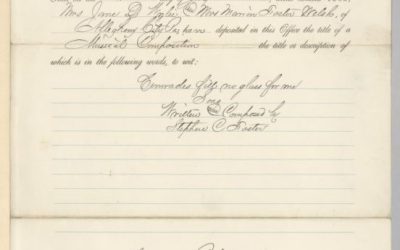 Mrs Jane D Wiley & Mrs Marion Foster Welsh, of
Allegheny City Pa have deposited in this Office the title of a
Musical Composition the title or description of
which is in the following words, to wit:
Comrades fill no glass for me
Song
Written & Composed by
Stephen C Foster